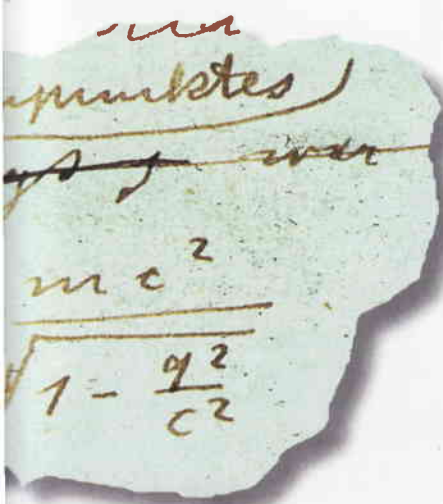 und
npunktes)
war
mc²
√1 - q²/c²